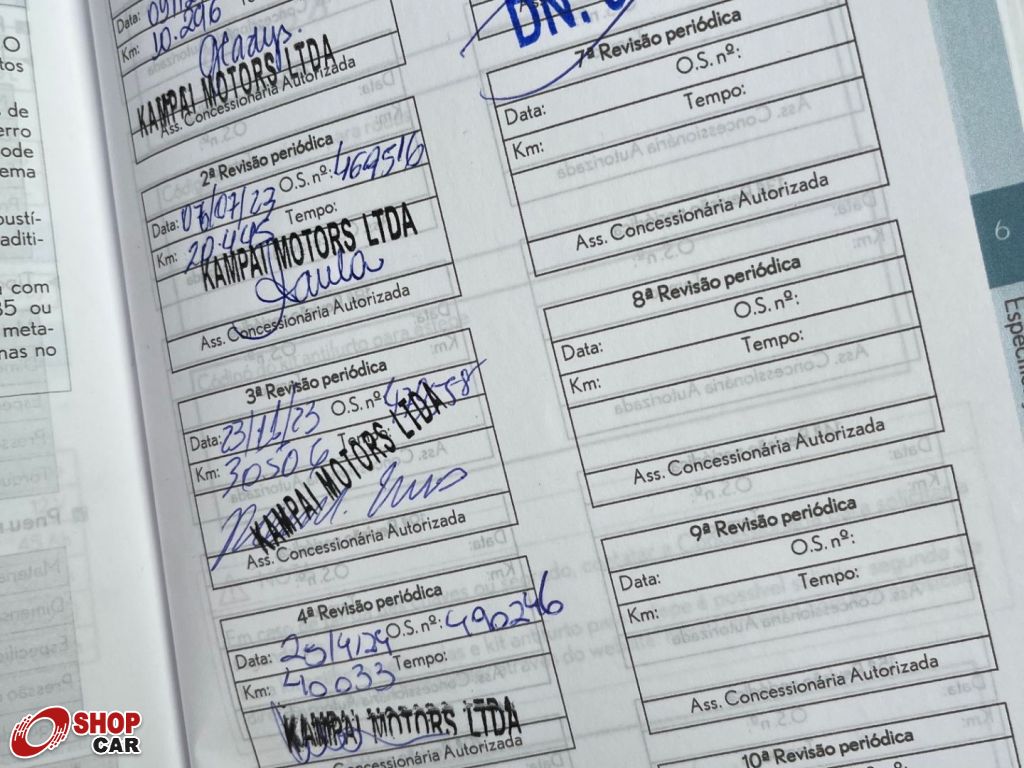 O
tos
de
erro
ode
ema
bustí-
aditi-
com
85 ou
meta-
nas no
Data:
Km: 10.296
Gladys.
KAMPAI MOTORS LTDA
Ass. Concessionária Autorizada
2ª Revisão periódica
O.S. nº: 469516
Data: 07/07/23
Tempo:
Km: 20.445
KAMPAI MOTORS LTDA
Paula
Ass. Concessionária Autorizada
3ª Revisão periódica
O.S. nº:
Data: 23/11/23
Km: 30506
KAMPAI MOTORS LTDA
Ass. Concessionária Autorizada
4ª Revisão periódica
O.S. nº: 490246
Data: 25/4/24
Tempo:
Km: 40033
KAMPAI MOTORS LTDA
Ass. Concessionária Autorizada
DN.
7ª Revisão periódica
O.S. nº:
Data:
Tempo:
Km:
Ass. Concessionária Autorizada
8ª Revisão periódica
O.S. nº:
Data:
Tempo:
Km:
Ass. Concessionária Autorizada
9ª Revisão periódica
O.S. nº:
Data:
Tempo:
Km:
Ass. Concessionária Autorizada
10ª Revisão periódica
6
SHOP
CAR